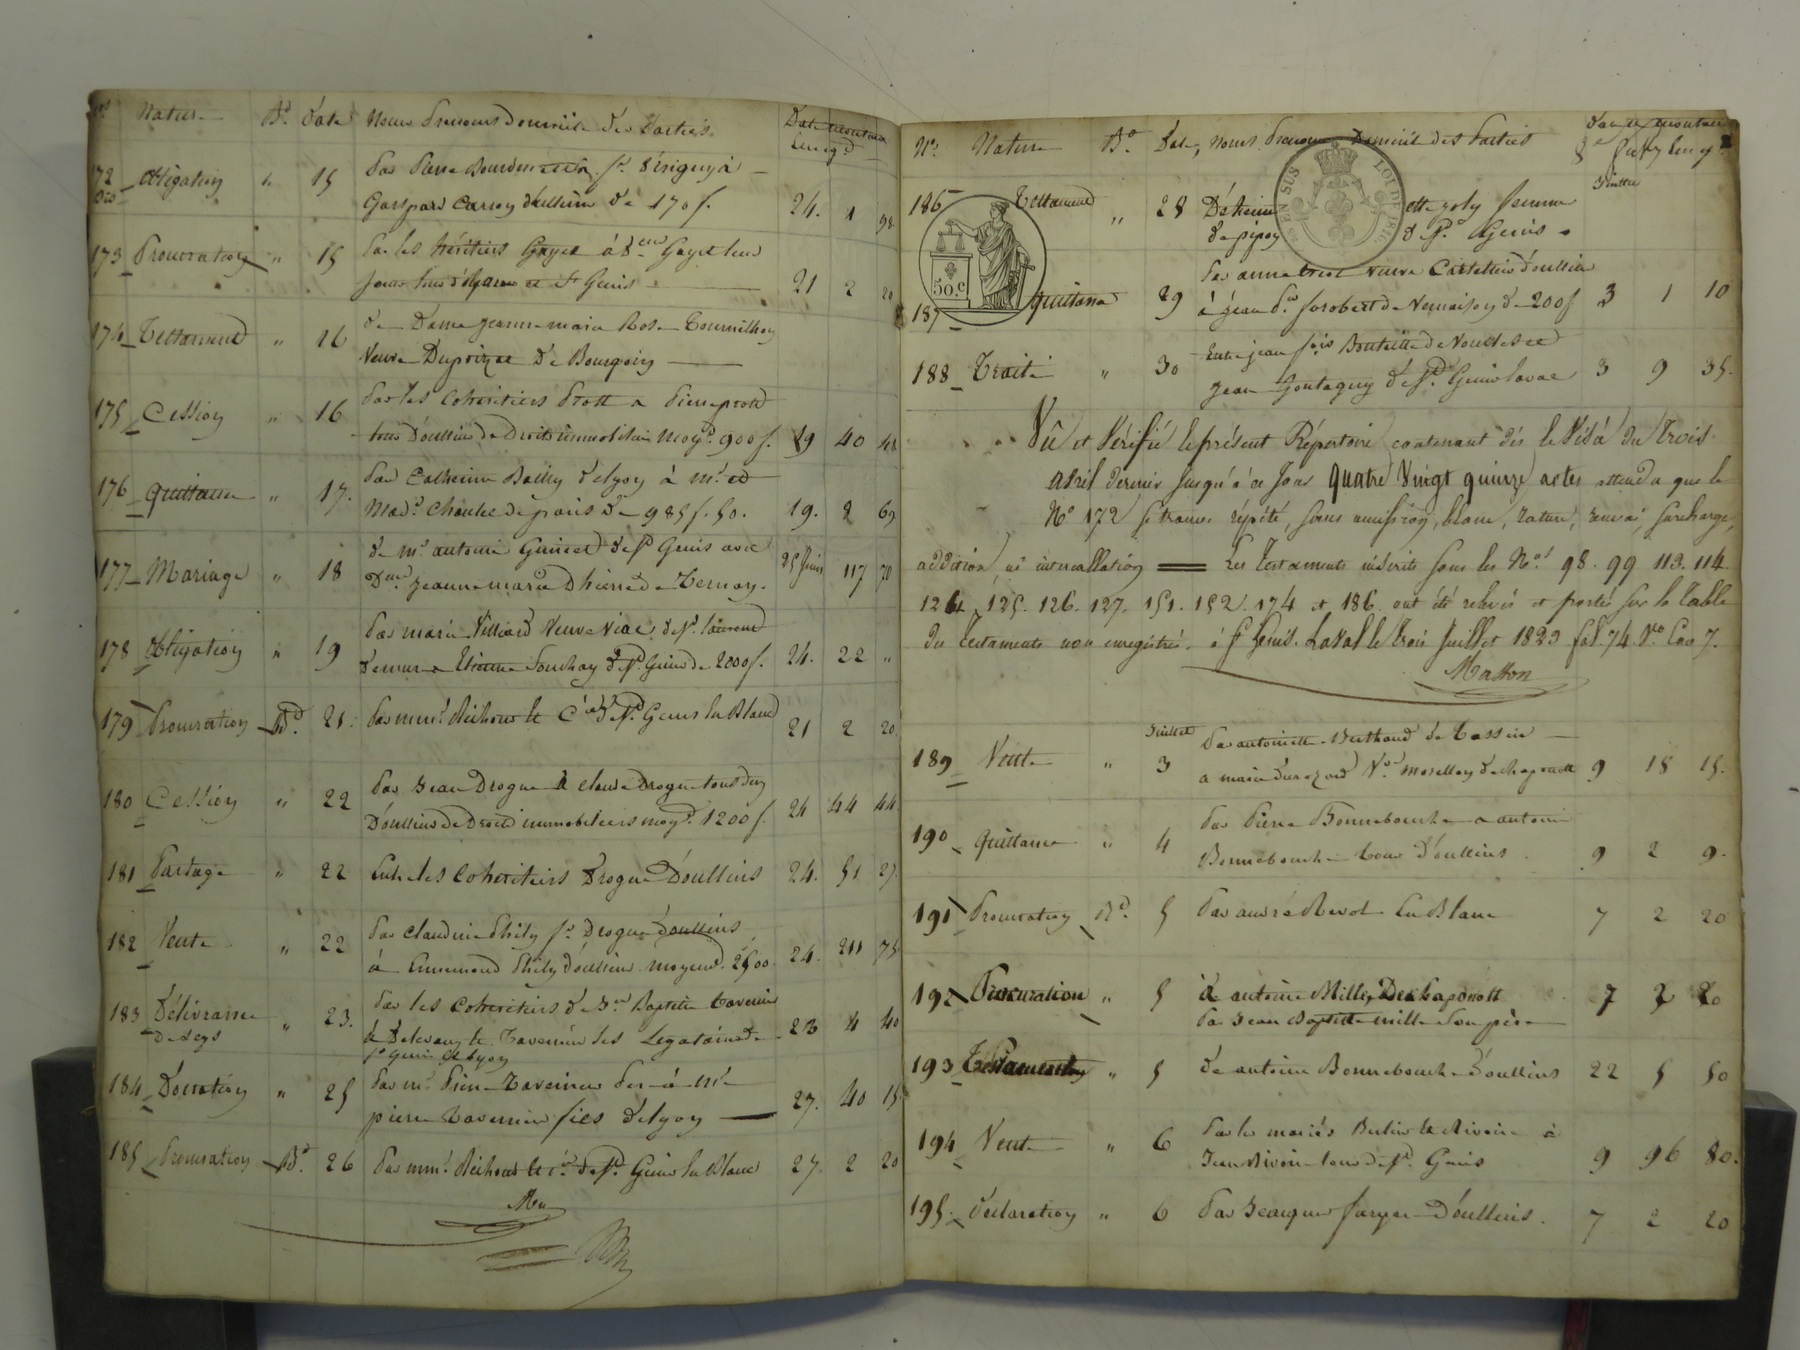 Nature Bt. Date Noms Prenoms Domicile des Parties Date & montant
Enregt.
172 bis Obligation " 15 Par Pierre
Gaspard Carroy d'oullins de 170 f. 24. 1 98
173 Procuration " 15 Par les héritiers Gayet à Sr Gayet leur
21 2 20
174 Testament " 16 de Dame jeanne marie Rose Tournilhon
Veuve Duprizet De Bourgoin
175 Cession " 16 Par les Cohéritiers Prost a Pierre prost
tous D'oullins de Droits immobiliers moyt. 900 f. 29 40 48
176 quittance " 17. Par Catherine Bailly de lyon à mr et
Made. de paris de 985 f. 50. 19. 2 69
177 Mariage " 18 de mr antoine de St Genis avec
Dme Jeanne marie de Ternay. 25 Juin 117 70
178 Obligation " 19 Par marie Villiard Veuve Viac de St laurent
a Etienne Souchay de St. Genis de 2000 f. 24. 22 "
179 Procuration Bt. 21. Par mmrs. de St. Genis En Blanc 21 2 20
180 Cession " 22 Par Jean Drogue à claude Drogue tous deux
D'oullins de Droits immobiliers moyt. 1200 f. 24 44 44
181 Partage " 22 Entre les Cohéritiers Drogue D'oullins 24. 51 27
182 Vente " 22 Par claudine Phily fe Drogue D'oullins
à Ennemond Phily d'oullins moyent. 2500 24. 211 75
183 Délivrance " 23. Par les Cohéritiers de Jn Baptiste tavernier
de Legs Tavernier les Légataires de 23 4 40
St genis & lyon
184 Donation " 25 Par mr. Pierre Tavernier Per à Mr
pierre tavernier fils de lyon 27. 40 15
185 Procuration Bt. 26 Par mmrs. de St. Genis En Blanc 27. 2 20
No. Nature Bt. Date, Noms Prenoms Domicile des Parties Date & montant
Enregt.
Juillet
186 Testament " 28 femme
de pipoy de St. Genis
50.c
187 quittance 29 Par anne veuve Castellin d'oullins
à jean de Vernaison de 200 f 3 1 10
188 Traité " 30 Entre jean fois de Noulles et
jean de St. Genis laval 3 9 35.
Vû et Vérifié le présent Répertoire contenant dès le Visa du trois
avril dernier jusqu'à ce jour quatre Vingt quinze actes attendu que le
No 172 se trouve répété, sans omission, blanc, rature, renvoi, surcharge,
addition, ni intercallation = Les Testaments inscrits sous les Nos 98. 99 113. 114
124, 125. 126. 127. 151. 152. 174 et 186. ont été relevés et portés sur la table
des testaments non enregistrés. à St Genis. Laval le trois Juillet 1823 fol. 74. Vo Case 7.
Masson
Juillet
189 Vente " 3 Par antoinette Berthaud de Tassin
a marie Ve Morellon de chaponost 9 18 15.
190 quittance " 4 Par Pierre Bonnebouche a antoine
Bonnebouche tous D'oullins 9 2 9.
191 Procuration Bt. 5 Par andré Revol En Blanc 7 2 20
192 Procuration " 5 à antoine Mille De chaponost
Par Jean Baptiste mille Son père 7 2 20
193 Testament " 5 de antoine Bonnebouche D'oullins 22 5 50
194 Vente " 6 Par les mariés Berlier & Rivoire à
Jean Rivoire tous de St. Genis 9 96 80.
195. Déclaration " 6 Par Jacques D'oullins. 7 2 20